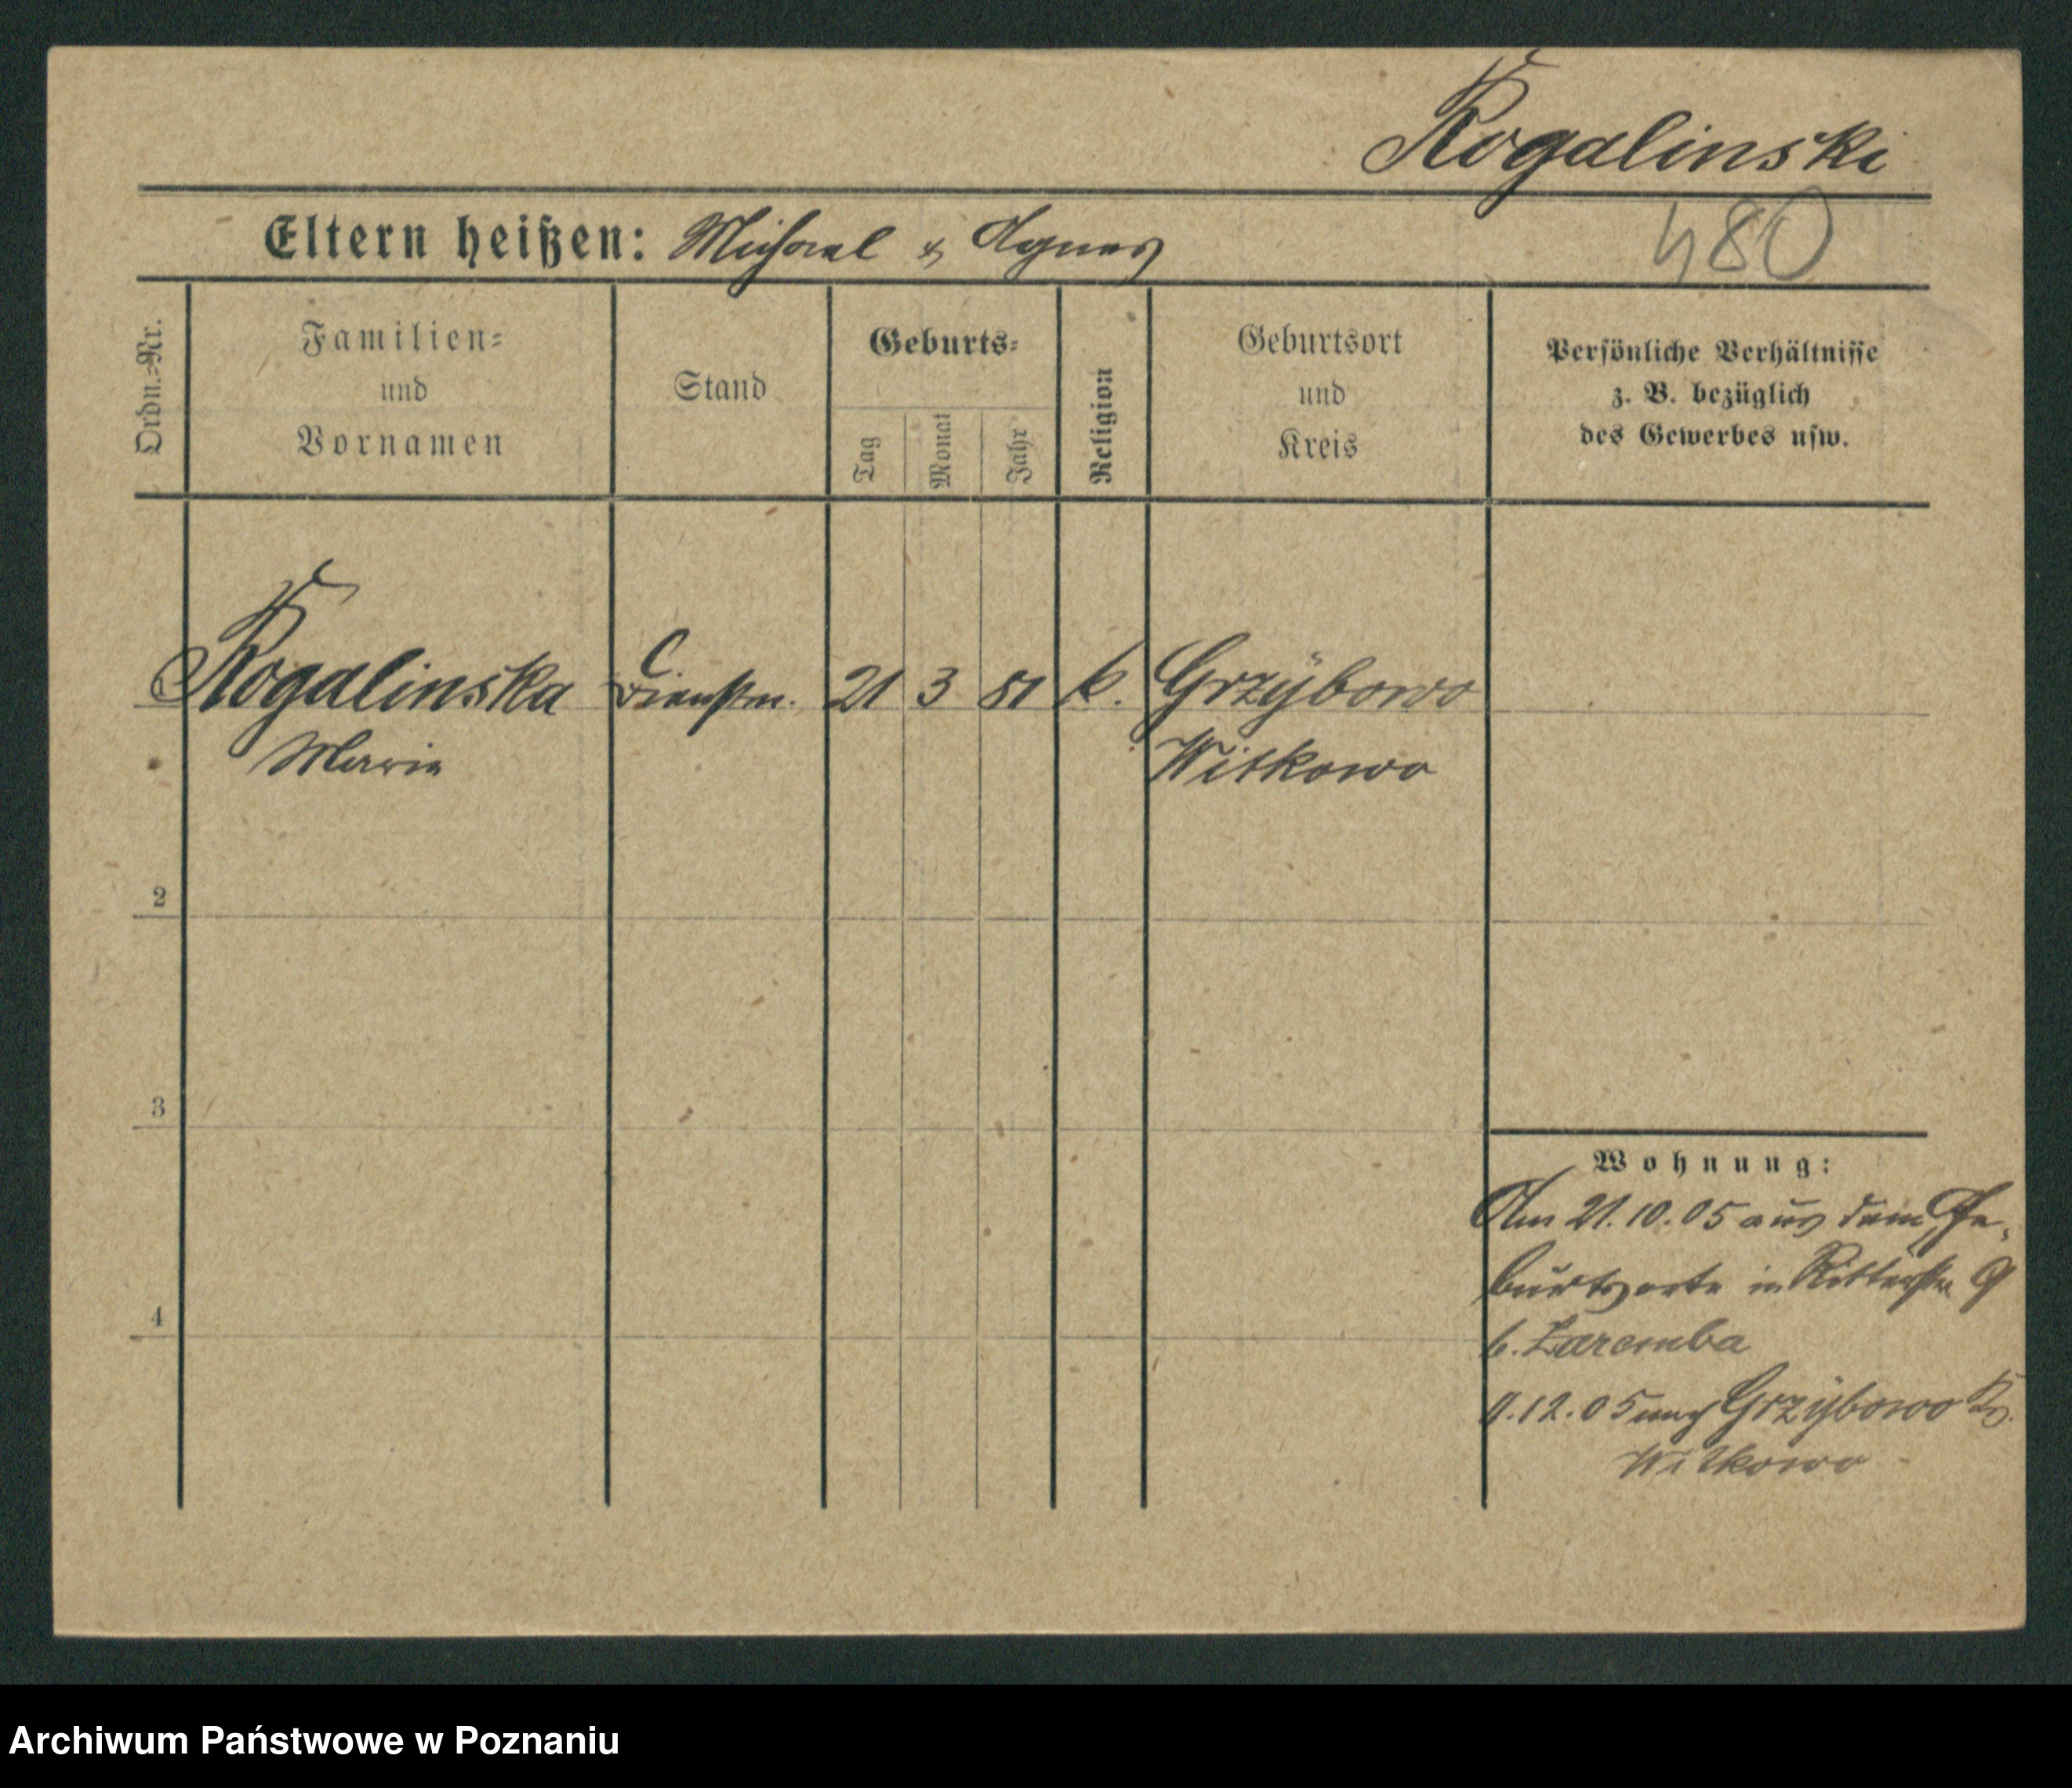 Rogalinski
480
Eltern heißen: Michael & Agnes
Ordn.-Nr.
Familien-
und
Vornamen
Stand
Geburts-
Tag
Monat
Jahr
Religion
Geburtsort
und
Kreis
Persönliche Verhältnisse
z. B. bezüglich
des Gewerbes usw.
Rogalinska Dienstm. 21 3 81 k. Grzybowo
Maria Witkowo
2
3
4
Wohnung:
Am 21.10.05 aus dem Ge-
burtsorte in Ritterstr 9
b. Zaremba
12.05 nach Grzybowo Kr.
Witkowo
Archiwum Państwowe w Poznaniu